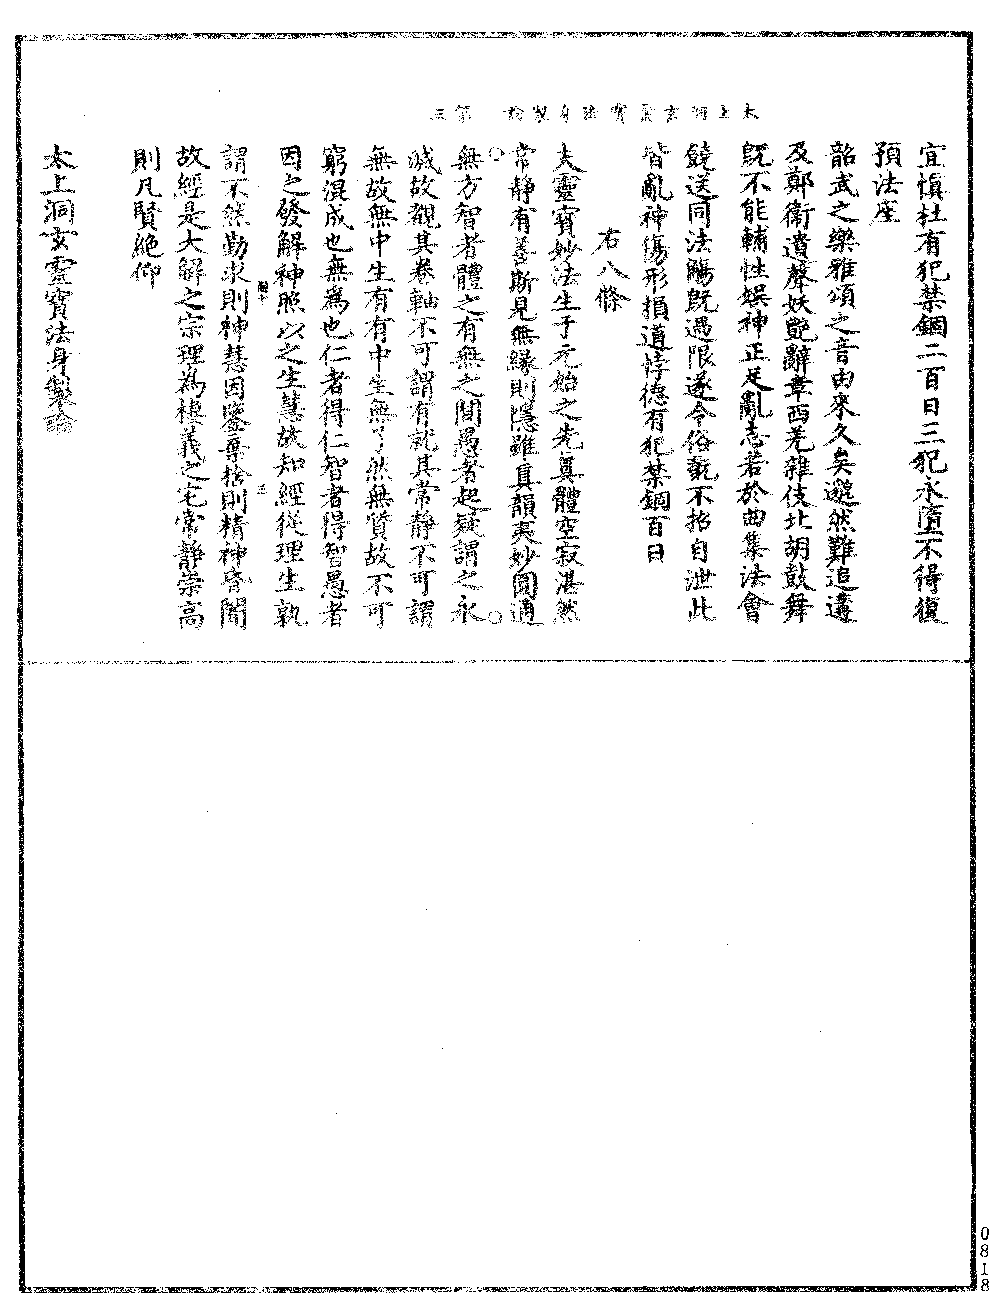 太上洞玄靈寶法身製論　第三
宜慎杜有犯禁錮二百日三犯永墮不得復
預法座
韶武之樂雅頌之音由來久矣邈然難追遘
及鄭衛遺聲妖艷辭章西羌雜伎北胡鼓舞
旣不能輔性娛神正足亂志若於曲集法會
饒送同法觴旣過限遂令俗氣不拘自泄此
皆亂神傷形損道悖德有犯禁錮百日
右八條
夫靈寶妙法生于元始之先眞體空寂湛然
常靜有善斯見無緣則隱雖真韻夷妙圓通
無方智者體之有無之間愚者起疑謂之永
滅故觀其卷軸不可謂有就其常靜不可謂
無故無中生有有中生無了然無質故不可
窮混成也無為也仁者得仁智者得智愚者
因之發解神照以之生慧故知經從理生孰
謂不然勤求則神慧因鑒棄捨則精神昏闇
故經是大解之宗理為棲義之宅常靜崇高
則凡賢絶仰
太上洞玄靈寶法身製論
0818